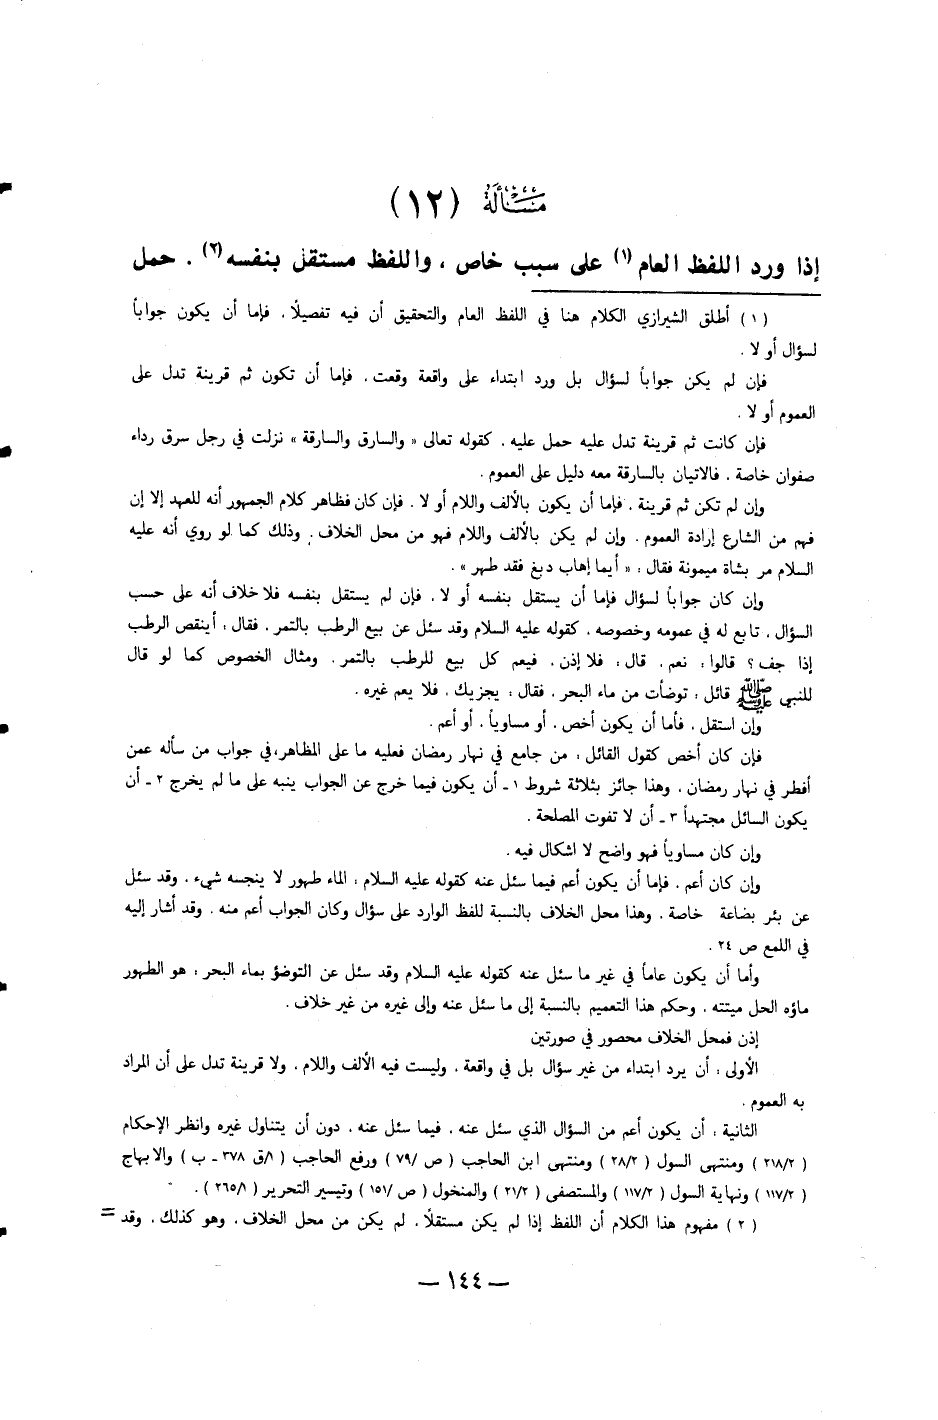 مسألة (١٢)
إذا ورد اللفظ العام (١) على سبب خاص ، واللفظ مستقل بنفسه (٢) . حمل
(١) أطلق الشيرازي الكلام هنا في اللفظ العام والتحقيق أن فيه تفصيلًا . فإما أن يكون جواباً
لسؤال أو لا .
فإن لم يكن جواباً لسؤال بل ورد ابتداء على واقعة وقعت . فإما أن تكون ثم قرينة تدل على
العموم أو لا .
فإن كانت ثم قرينة تدل عليه حمل عليه . كقوله تعالى « والسارق والسارقة » نزلت في رجل سرق رداء
صفوان خاصة . فالاتيان بالسارقة معه دليل على العموم .
وإن لم تكن ثم قرينة . فإما أن يكون بالألف واللام أو لا . فإن كان فظاهر كلام الجمهور أنه للعهد إلا إن
فهم من الشارع إرادة العموم . وإن لم يكن بالألف واللام فهو من محل الخلاف . وذلك كما لو روي أنه عليه
السلام مر بشاة ميمونة فقال : « أيما إهاب دبغ فقد طهر » .
وإن كان جواباً لسؤال فإما أن يستقل بنفسه أو لا . فإن لم يستقل بنفسه فلا خلاف أنه على حسب
السؤال . تابع له في عمومه وخصوصه . كقوله عليه السلام وقد سئل عن بيع الرطب بالتمر . فقال : أينقص الرطب
إذا جف ؟ قالوا : نعم . قال : فلا إذن . فيعم كل بيع للرطب بالتمر . ومثال الخصوص كما لو قال
للنبي ﷺ قائل : توضأت من ماء البحر . فقال : يجزيك . فلا يعم غيره .
وإن استقل . فأما أن يكون أخص . أو مساوياً . أو أعم .
فإن كان أخص كقول القائل : من جامع في نهار رمضان فعليه ما على المظاهر ، في جواب من سأله عمن
أفطر في نهار رمضان . وهذا جائز بثلاثة شروط ١ ـ أن يكون فيما خرج عن الجواب ينبه على ما لم يخرج ٢ ـ أن
يكون السائل مجتهداً ٣ ـ أن لا تفوت المصلحة .
وإن كان مساوياً فهو واضح لا اشكال فيه .
وإن كان أعم . فإما أن يكون أعم فيما سئل عنه كقوله عليه السلام : الماء طهور لا ينجسه شيء . وقد سئل
عن بئر بضاعة خاصة . وهذا محل الخلاف بالنسبة للفظ الوارد على سؤال وكان الجواب أعم منه . وقد أشار إليه
في اللمع ص ٢٤ .
وأما أن يكون عاماً في غير ما سئل عنه كقوله عليه السلام وقد سئل عن التوضؤ بماء البحر : هو الطهور
ماؤه الحل ميتته . وحكم هذا التعميم بالنسبة إلى ما سئل عنه وإلى غيره من غير خلاف .
إذن فمحل الخلاف محصور في صورتين
الأولى : أن يرد ابتداء من غير سؤال بل في واقعة . وليست فيه الألف واللام . ولا قرينة تدل على أن المراد
به العموم .
الثانية : أن يكون أعم من السؤال الذي سئل عنه . فيما سئل عنه . دون أن يتناول غيره وانظر الإحكام
( ٢١٨/٢ ) ومنتهى السول ( ٢٨/٢ ) ومنتهى ابن الحاجب ( ص /٧٩ ) ورفع الحاجب ( ١/ق ٣٧٨ ـ ب ) والابهاج
( ١١٧/٢ ) ونهاية السول ( ١١٧/٢ ) والمستصفى ( ٢١/٢ ) والمنخول ( ص /١٥١ ) وتيسير التحرير ( ٢٦٥/١ ) .
( ٢ ) مفهوم هذا الكلام أن اللفظ إذا لم يكن مستقلًا . لم يكن من محل الخلاف . وهو كذلك . وقد =
— ١٤٤ —